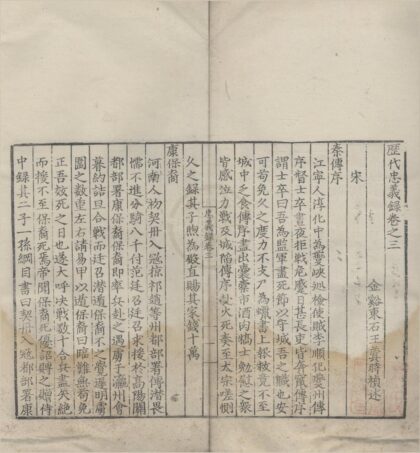 歷代忠義錄卷之三
金谿東石王蓂時禎述
宋
秦傳序
江寧人淳化中為夔峽巡檢使賊李順化夔州傳
序督士卒晝夜拒戰危蹙日甚長吏皆奔竄傳序
謂士卒曰吾為監軍盡死節以守城吾之職也安
可苟免久之度力不支乃為蠟書上報救竟不至
城中乏食傳序盡出囊橐市酒肉犒士勉慰之眾
皆感泣力戰及城陷傳序赴火死奏至太宗嗟惻
久之錄其子煦為殿直賜其家錢十萬
忠義錄卷三
康保裔
河南人初契丹入寇掠祁趙等州都部署傅潛畏
懦不進分騎八千付范廷召廷召求援於高陽關
都部署康保裔保裔即率兵赴之遇虜于瀛州會
暮約詰旦合戰而廷召潛遁保裔不之覺遲明虜
圍之數重左右請易甲以遁保裔曰臨難無苟免
正吾效死之日也遂大呼決戰數十合兵盡矢絕
而援不至保裔死焉帝聞保裔死優詔贈之贈侍
中錄其二子一孫綱目書曰契丹入寇都部署康